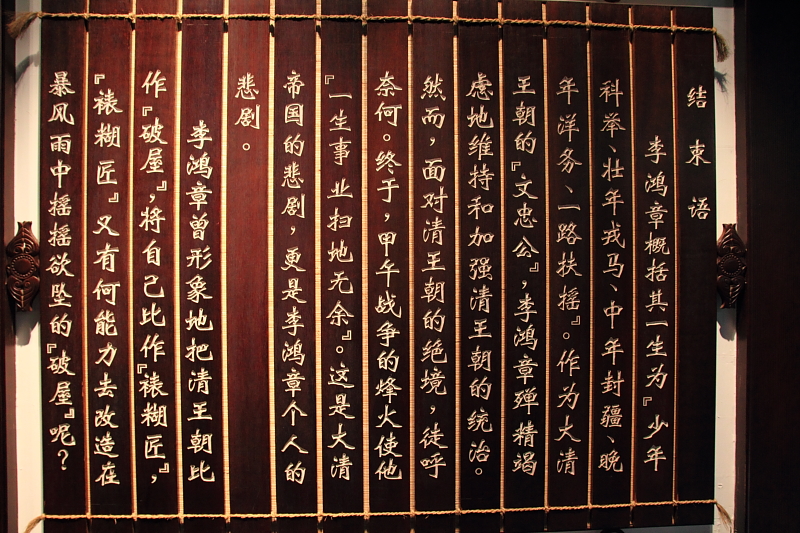 结束语
李鸿章概括其一生为『少年
科举、壮年戎马、中年封疆、晚
年洋务、一路扶摇』。作为大清
王朝的『文忠公』，李鸿章殚精竭
虑地维持和加强清王朝的统治。
然而，面对清王朝的绝境，徒呼
奈何。终于，甲午战争的烽火使他
『一生事业扫地无余』。这是大清
帝国的悲剧，更是李鸿章个人的
悲剧。
李鸿章曾形象地把清王朝比
作『破屋』，将自己比作『裱糊匠』，
『裱糊匠』又有何能力去改造在
暴风雨中摇摇欲坠的『破屋』呢？